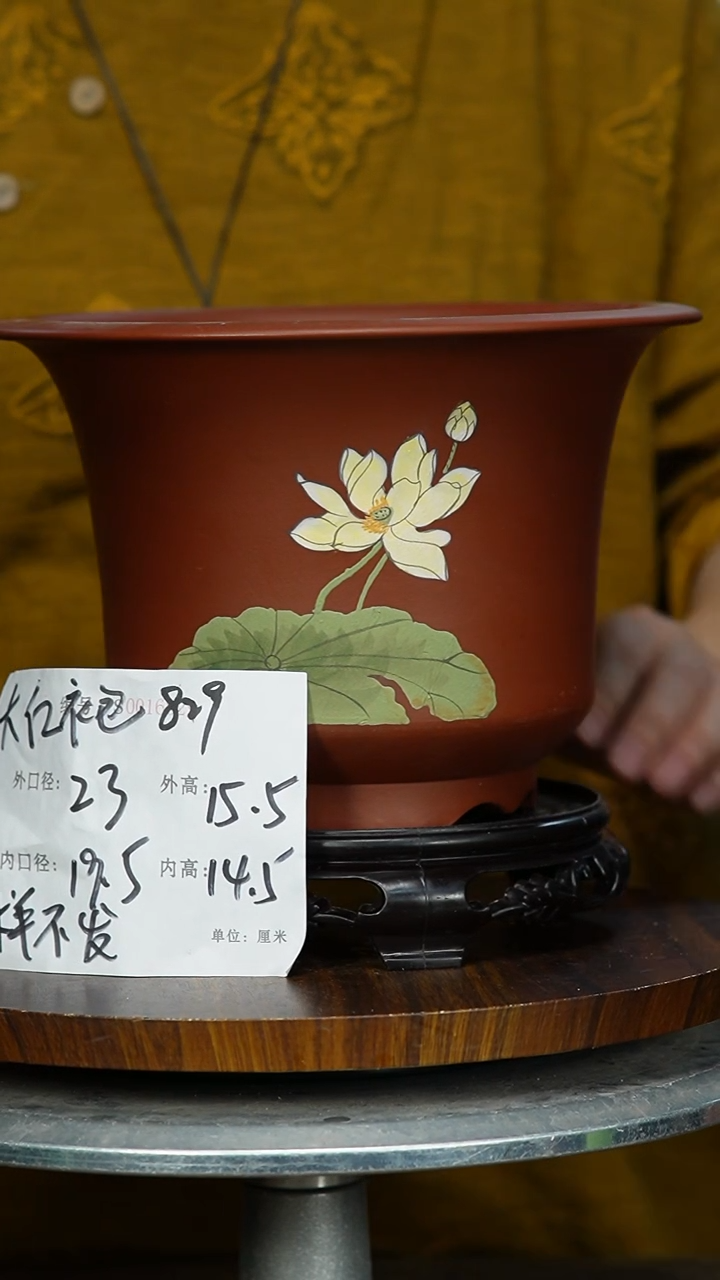 大红袍 829
外口径: 23 外高: 15.5
内口径: 19.5 内高: 14.5
样不发
单位: 厘米